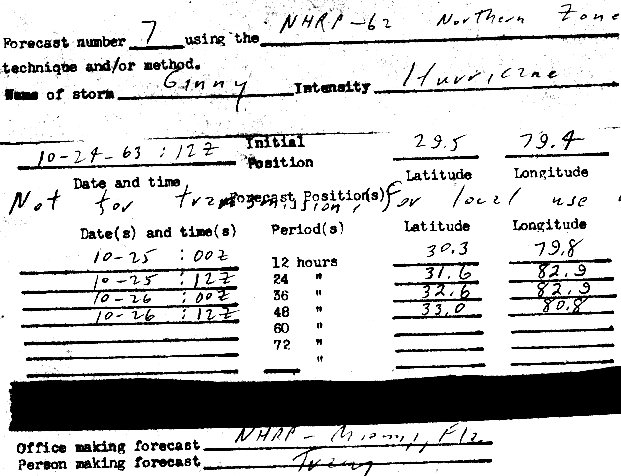 Forecast number 7 using the NHRP-62 Northern Zone
technique and/or method.
Name of storm Ginny Intensity Hurricane
10-24-63 : 12Z Initial Position 29.5 79.4
Date and time Latitude Longitude
Not for transmission, for local use
Forecast Position(s)
Date(s) and time(s) Period(s) Latitude Longitude
10-25 : 00Z 12 hours 30.3 79.8
10-25 : 12Z 24 " 31.6 82.9
10-26 : 00Z 36 " 32.6 82.9
10-26 : 12Z 48 " 33.0 80.8
60 "
72 "
"
Office making forecast NHRP - Miami, Fla
Person making forecast